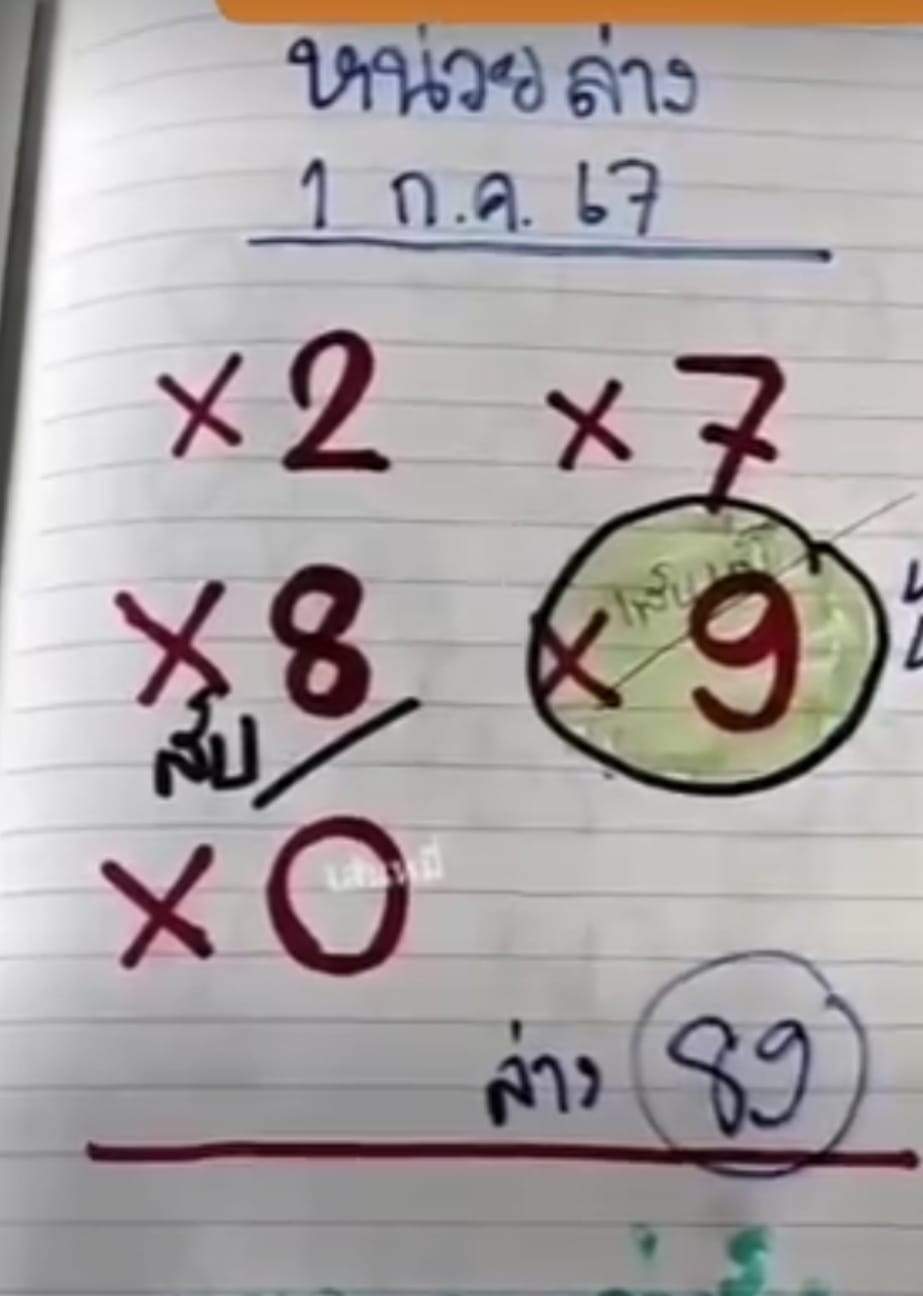 หน่วย ล่าง
1 ก.ค. 67
×2 ×7
×8 ×9
สิบ/
×0
ล่าง 89